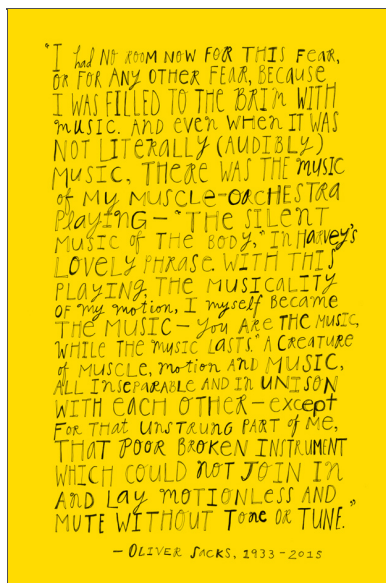 "I had NO ROOM NOW FOR THIS FEAR,
OR FOR ANY OTHER FEAR, BECAUSE
I WAS FILLED TO THE BRIM WITH
MUSIC. AND even WHEN IT WAS
NOT LITERALLY (AUDIBLY)
MUSIC, THERE WAS THE MUSIC
of MY MUSCLE-ORCHESTRA
PLAYING – "THE SILENT
MUSIC of THE BODY," IN HARVEY'S
LOVELY PHRASE. WITH THIS
PLAYING, THE MUSICALITY
OF my motion, I myself Became
THE MUSIC – You ARE THE MUSIC,
WHILE THE MUSIC LASTS." A CREATURE
of MUSCLE, motion AND MUSIC,
ALL INSEPARABLE AND IN UNISON
WITH eACH OTHER – except
FOR THAT UNSTRUNG PART of Me,
THAT POOR BROKEN INSTRUMENT
WHICH COULD NOT JOIN IN
AND LAY MOTIONLESS AND
MUTE WITHOUT Tone OR TUNE."
– OLIVER SACKS, 1933-2015